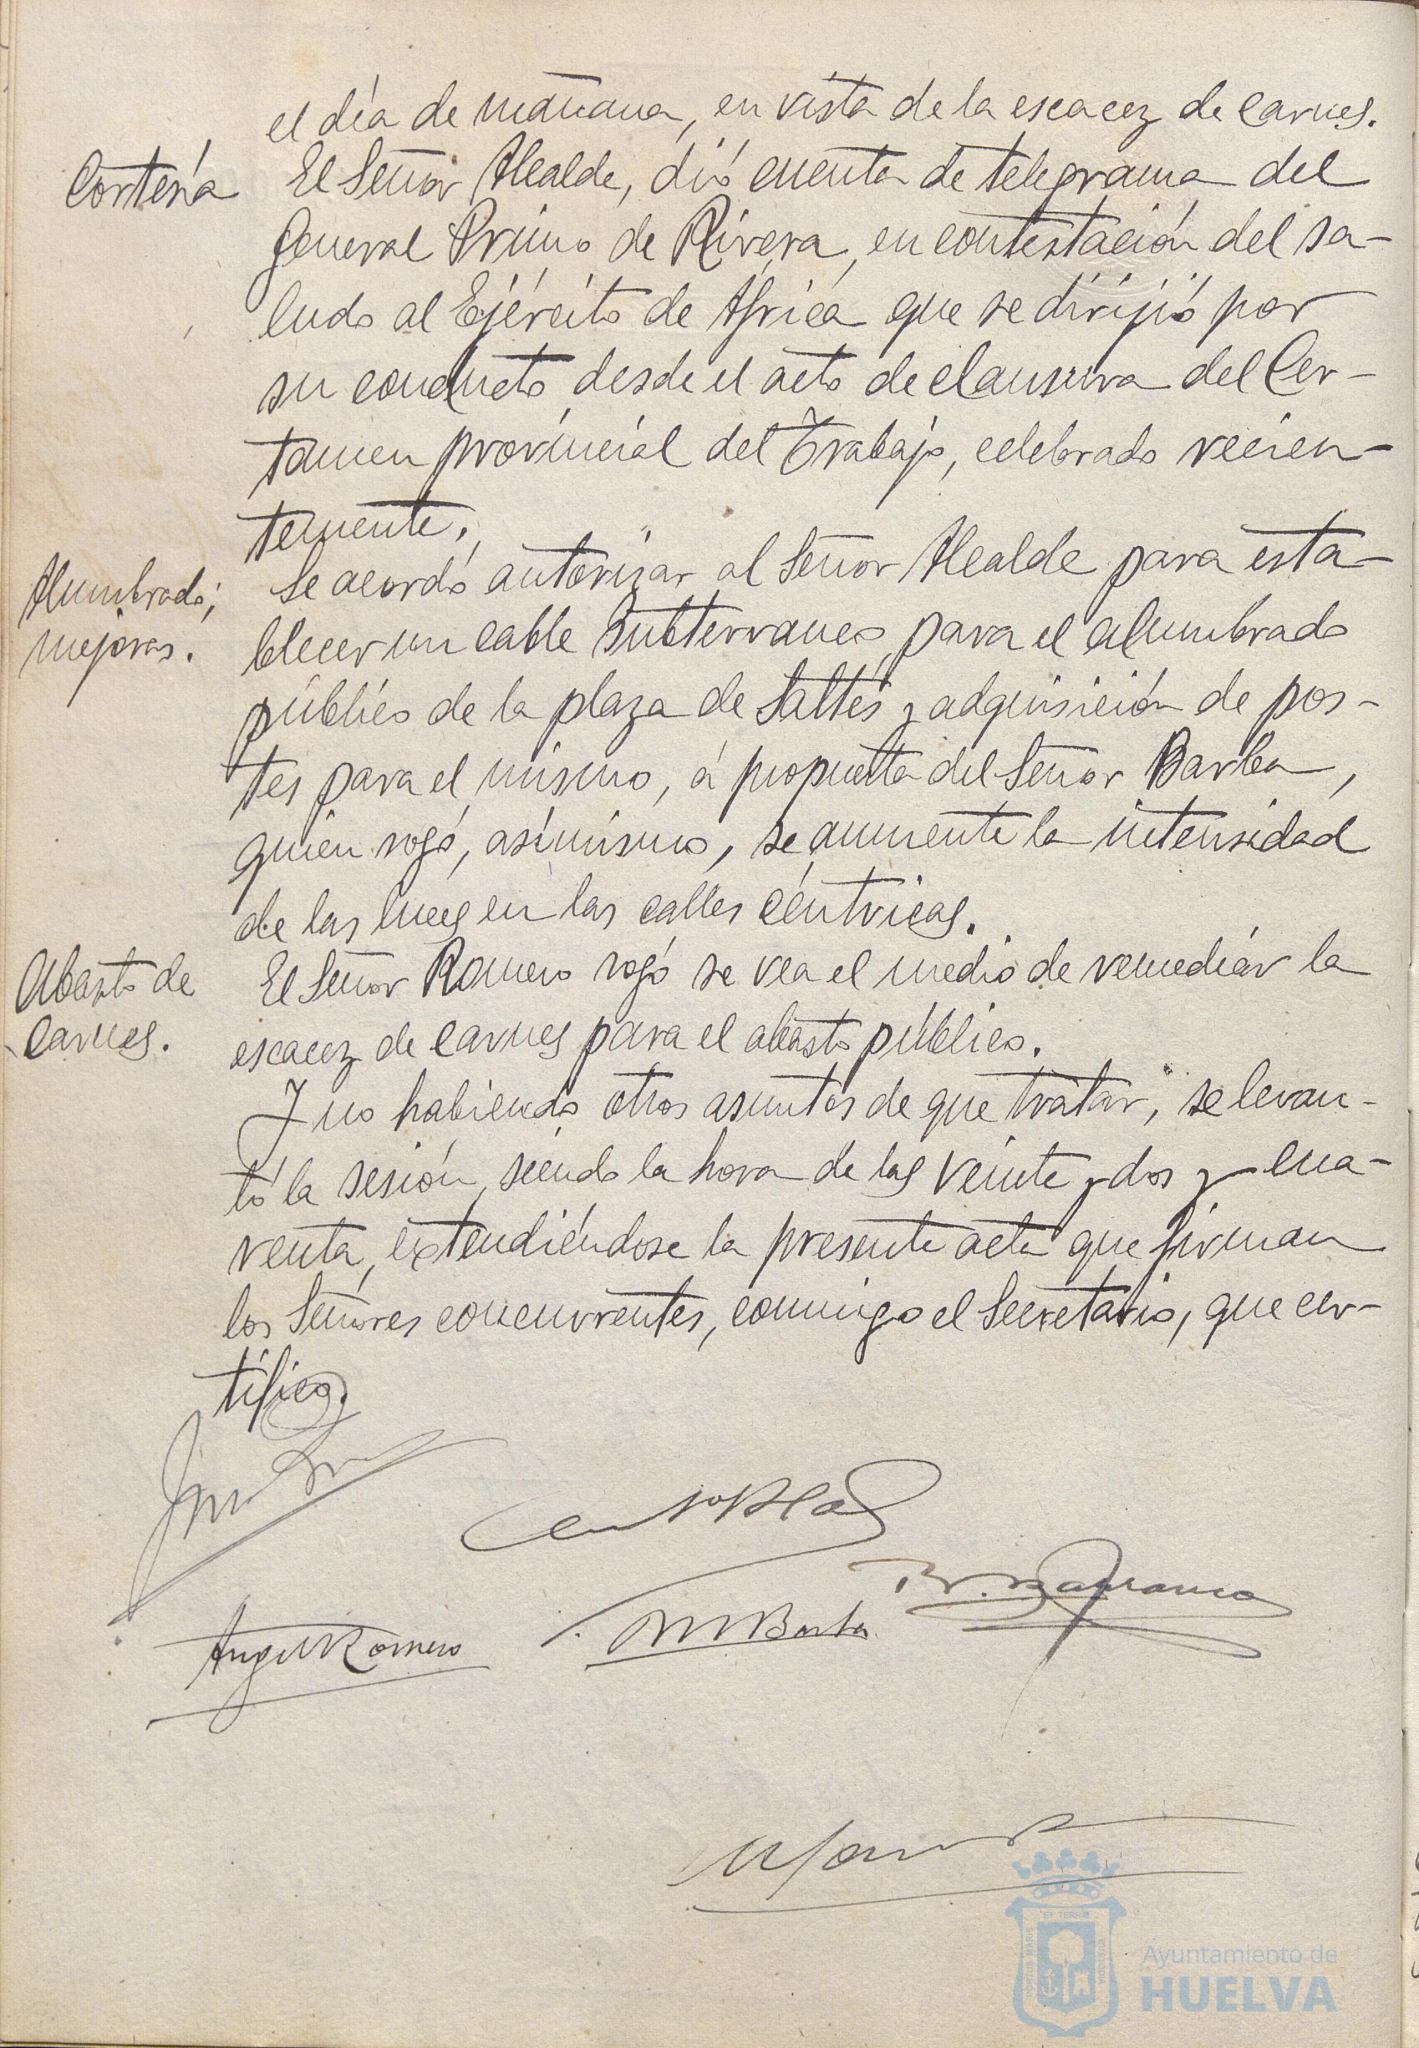 el día de mañana, en vista de la escacez de carnes.
Cortesía
El Señor Alcalde, dió cuenta de telegrama del
General Primo de Rivera, en contestación del sa-
ludo al Ejército de Africa que se dirijió por
su conducto, desde el acto de clausura del Cer-
tamen provincial del Trabajo, celebrado recien-
temente.
Alumbrado;
mejoras.
Se acordó autorizar al Señor Alcalde para esta-
blecer un cable subterraneo, para el alumbrado
público de la plaza de Saltés y adquisición de pos-
tes para el mismo, á propuesta del Señor Barba,
quien rogó, asimismo, se aumente la intensidad
de las luces en las calles céntricas.
Abasto de
carnes.
El Señor Romero rogó se vea el medio de remediar la
escacez de carnes para el abasto público.
Y no habiendo otros asuntos de que tratar, se levan-
tó la sesión, siendo la hora de las veinte y dos y cua-
renta, extendiéndose la presente acta que firman
los Señores concurrentes, conmigo el Secretario, que cer-
tifico.
Angel Romero
M Barba
Ayuntamiento de
HUELVA